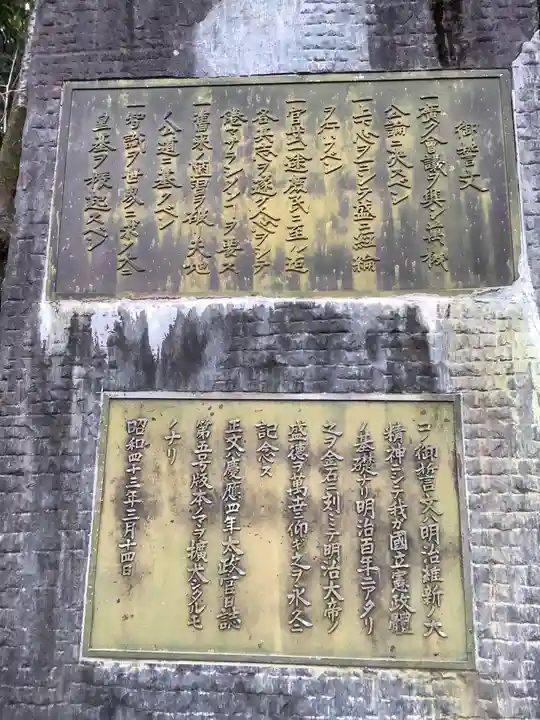 御誓文
一廣ク會議ヲ興シ萬機
公論ニ決スヘシ
一上下心ヲ一ニシテ盛ニ經綸
ヲ行フヘシ
一官武一途庶民ニ至ル迄
各其志ヲ遂ケ人心ヲシテ
倦マサラシメン事ヲ要ス
一舊來ノ陋習ヲ破リ天地
ノ公道ニ基クヘシ
一智識ヲ世界ニ求メ大ニ
皇基ヲ振起スヘシ
コノ御誓文ハ明治維新ノ大
精神ニシテ我ガ國立憲政體
ノ基礎ナリ明治百年ニアタリ
之ヲ金石ニ刻ミテ明治大帝ノ
盛徳ヲ萬世ニ仰ギ之ヲ永久ニ
記念ス
正文ハ慶應四年太政官日誌
第五号版本ノママヲ擴大シタルモ
ノナリ
昭和四十三年二月十四日